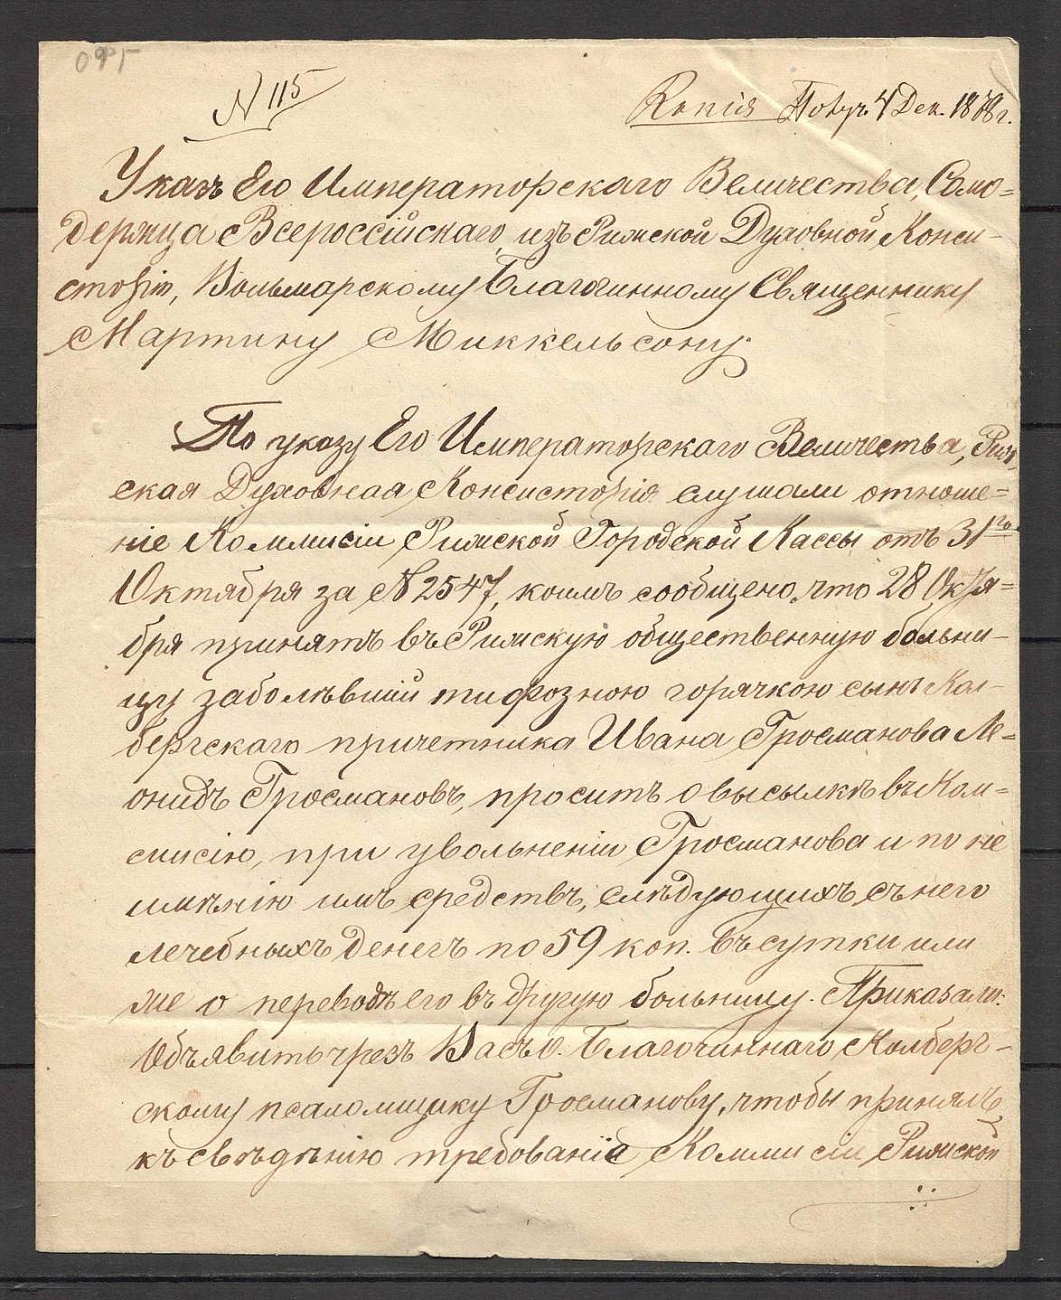 095
N 115
Копія Получ. 4 Дек. 1878 г.
Указъ Его Императорскаго Величества, Само-
держца Всероссійскаго изъ Рижской Духовной Конси-
сторіи, Вольмарскому Благочинному Священнику
Мартину Миккельсону.
По указу Его Императорскаго Величества, Риж
ская Духовная Консисторія слушали отноше-
ніе Коммисіи Рижской Городской Кассы отъ 31го
Октября за N 2547, коимъ сообщено, что 28 Октя-
бря принятъ въ Рижскую общественную больни-
цу заболѣвшій тифозною горячкою сынъ Кол-
бергскаго причетника Ивана Гросманова Ле-
онидъ Гросмановъ, проситъ о высылкѣ въ Ком-
мисію, при увольненіи Гросманова и по не
имѣнію имъ средствъ, слѣдующихъ съ него
лечебныхъ денегъ по 59 коп. въ сутки или
же о переводѣ его въ другую больницу. Приказали:
Объявить чрезъ Васъ О. Благочиннаго Колберг-
скому псаломщику Гросманову, чтобы принялъ
къ свѣдѣнію требованіе Коммисіи Рижской